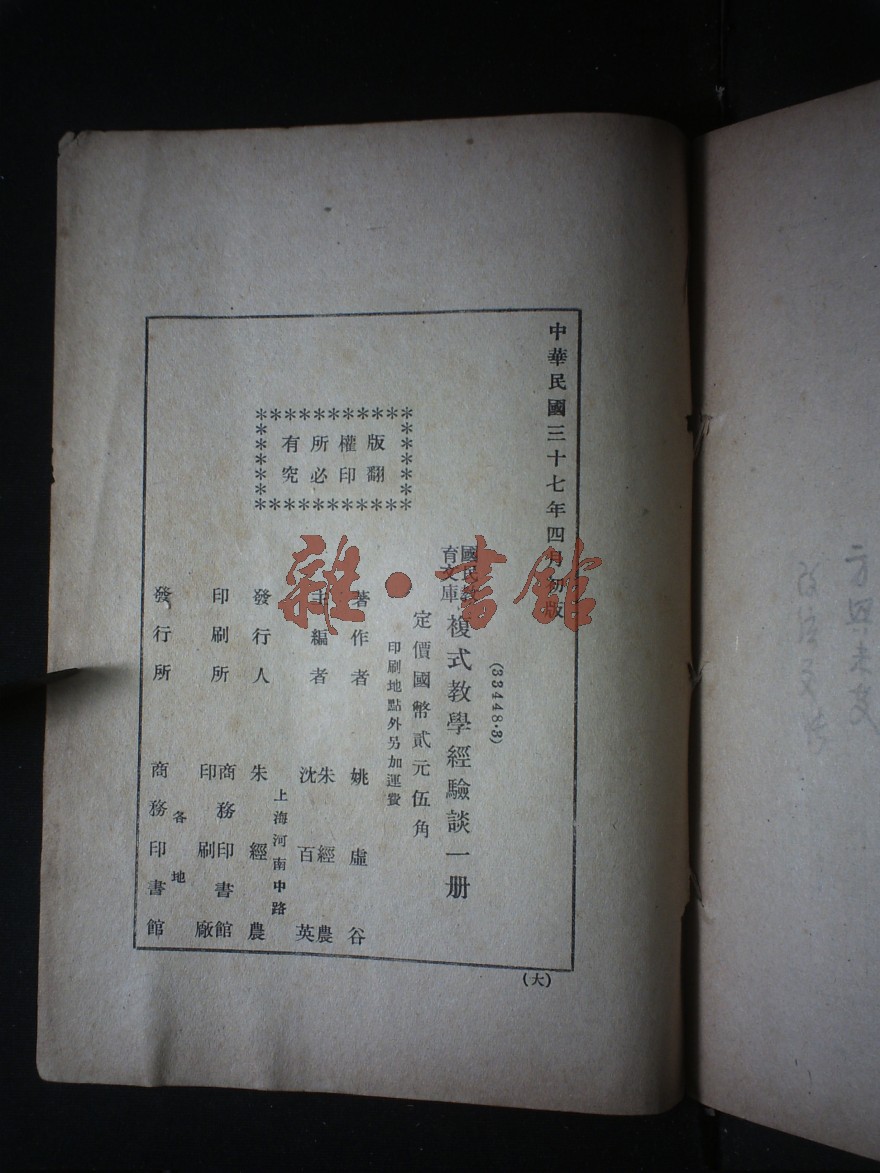 中華民國三十七年四月初版
(33448·3)
國民教育文庫 複式教學經驗談一册
定價國幣貳元伍角
印刷地點外另加運費
版權所有
翻印必究
著作者 姚虛谷
主編者 朱經農 沈百英
上海河南中路
發行人 朱經農
印刷所 商務印書館印刷廠
各地
發行所 商務印書館
(大)
雜·書館